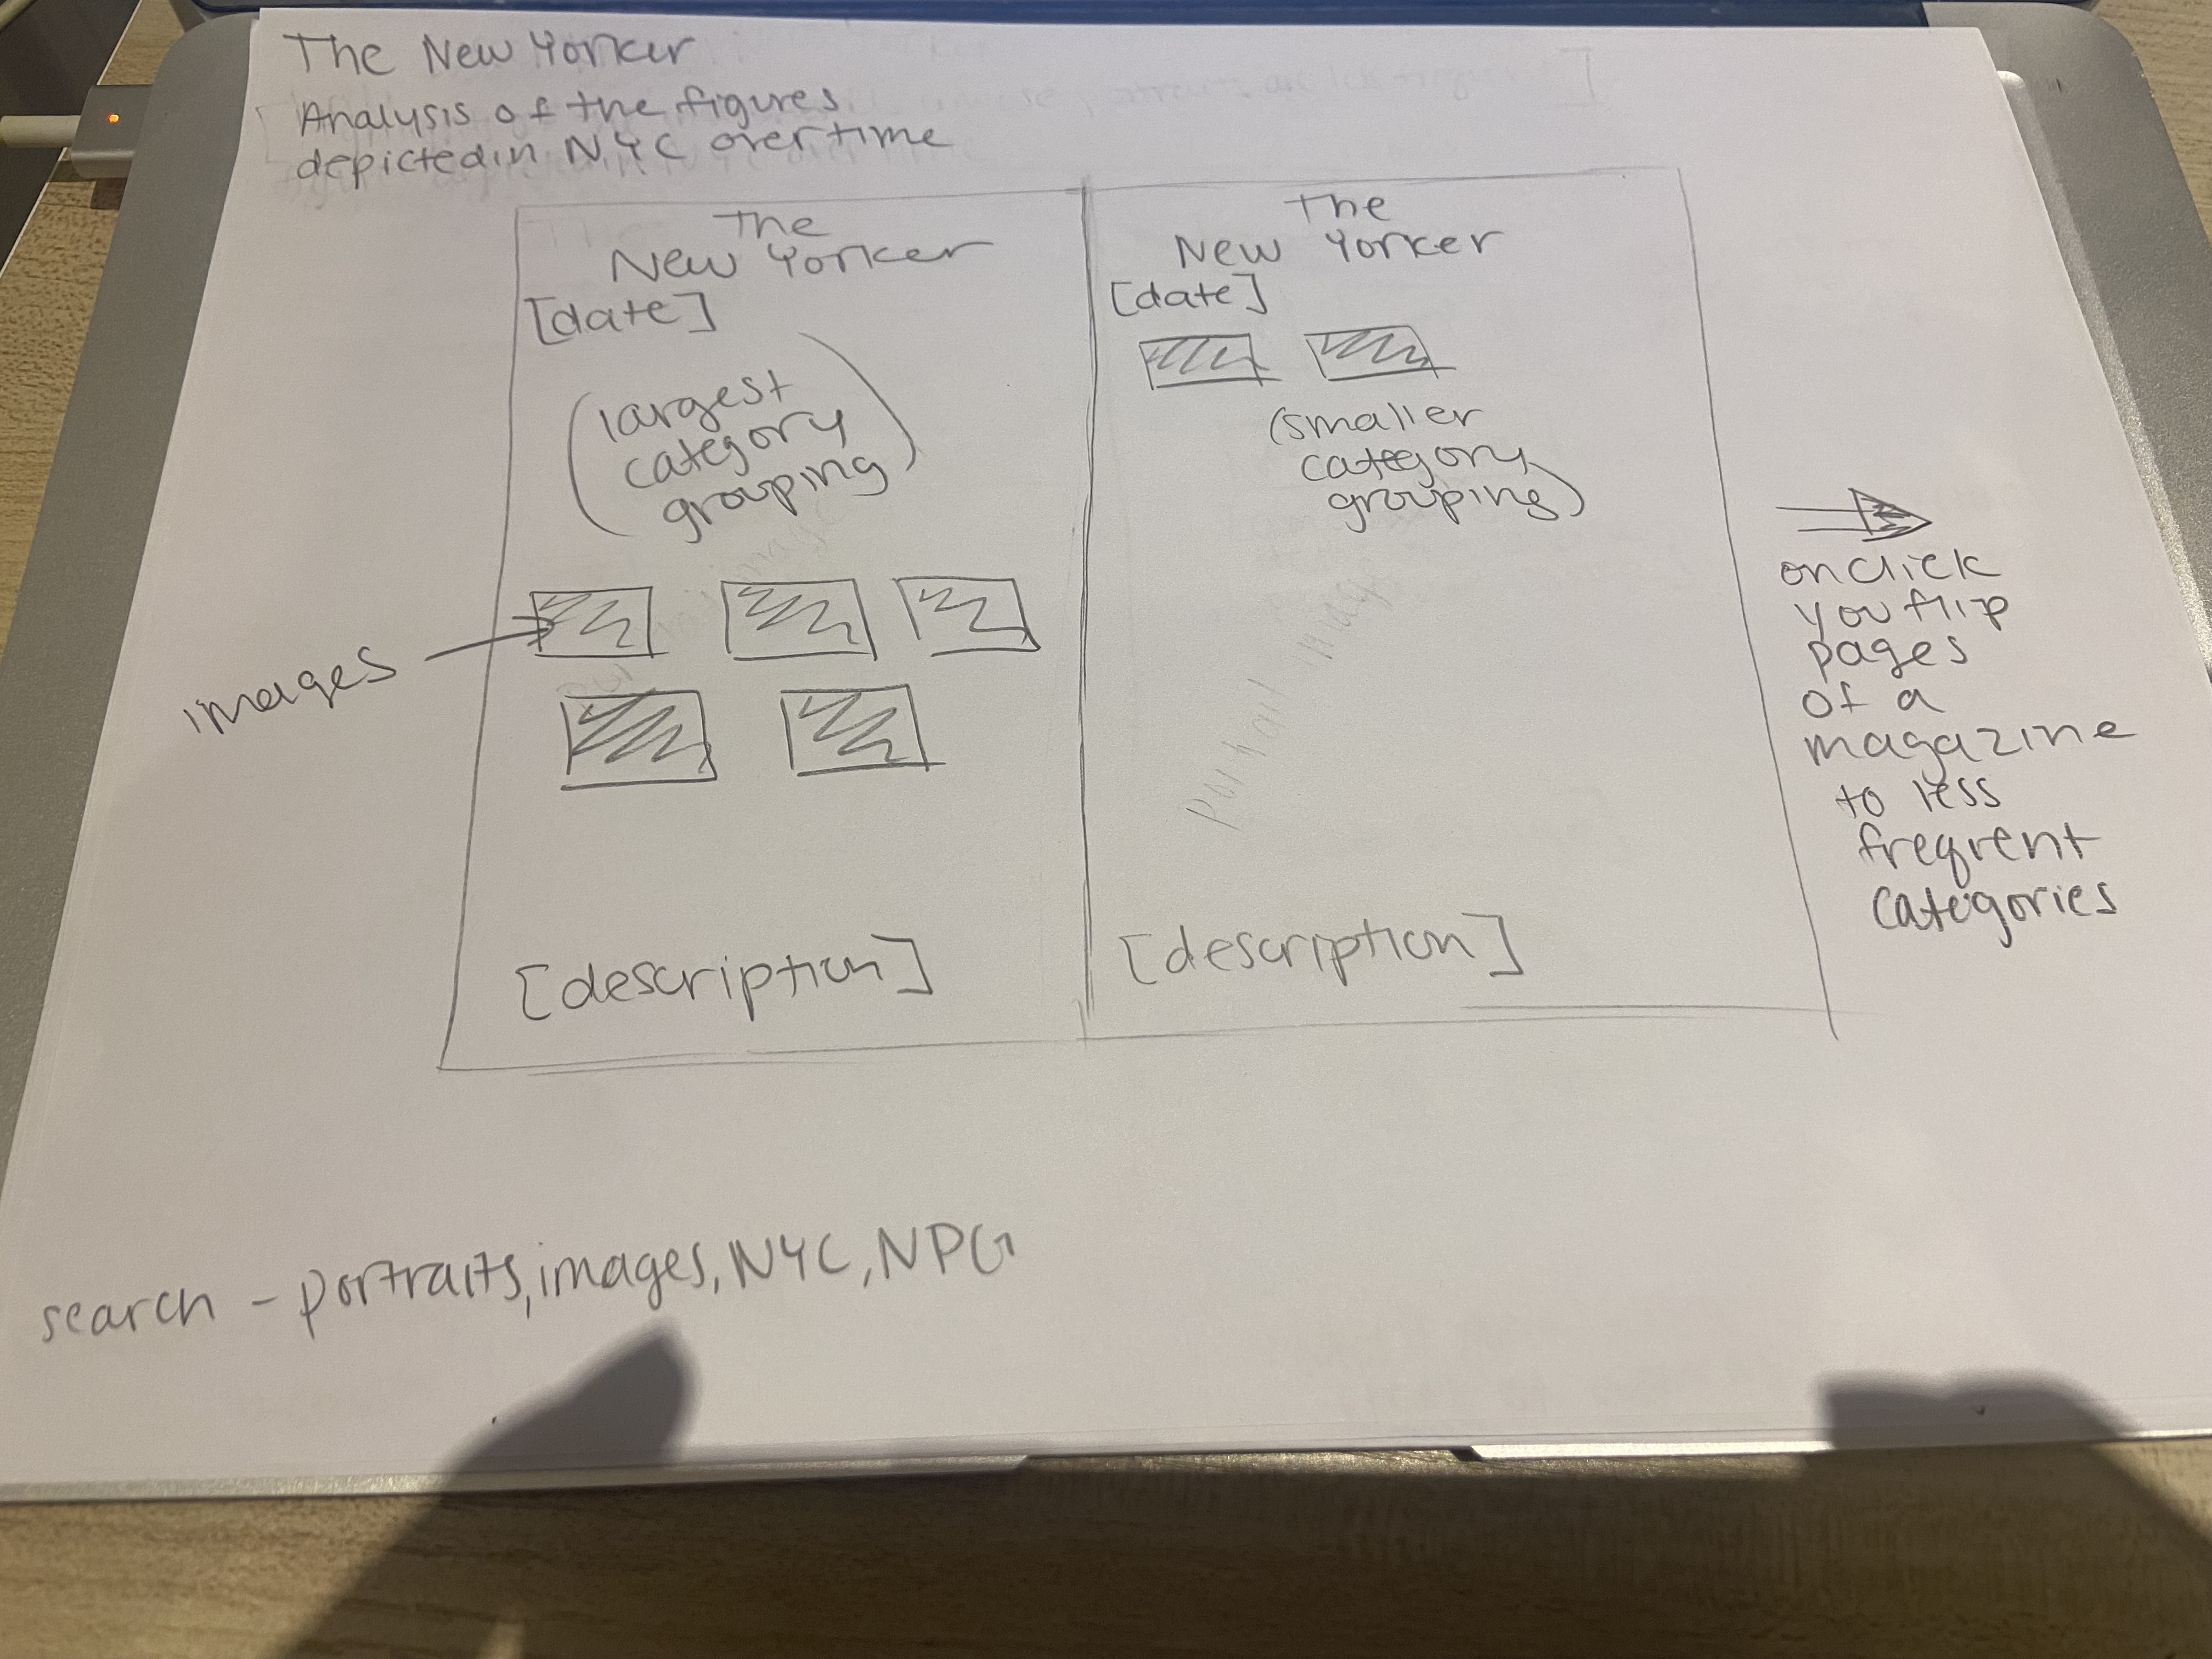 The New Yorker
Analysis of the figures
depicted in NYC over time
The
New Yorker
[date]
(largest
category
grouping)
images
[description]
The
New Yorker
[date]
(smaller
category
grouping)
[description]
onclick
you flip
pages
of a
magazine
to less
freqrent
categories
search - portraits, images, NYC, NPG